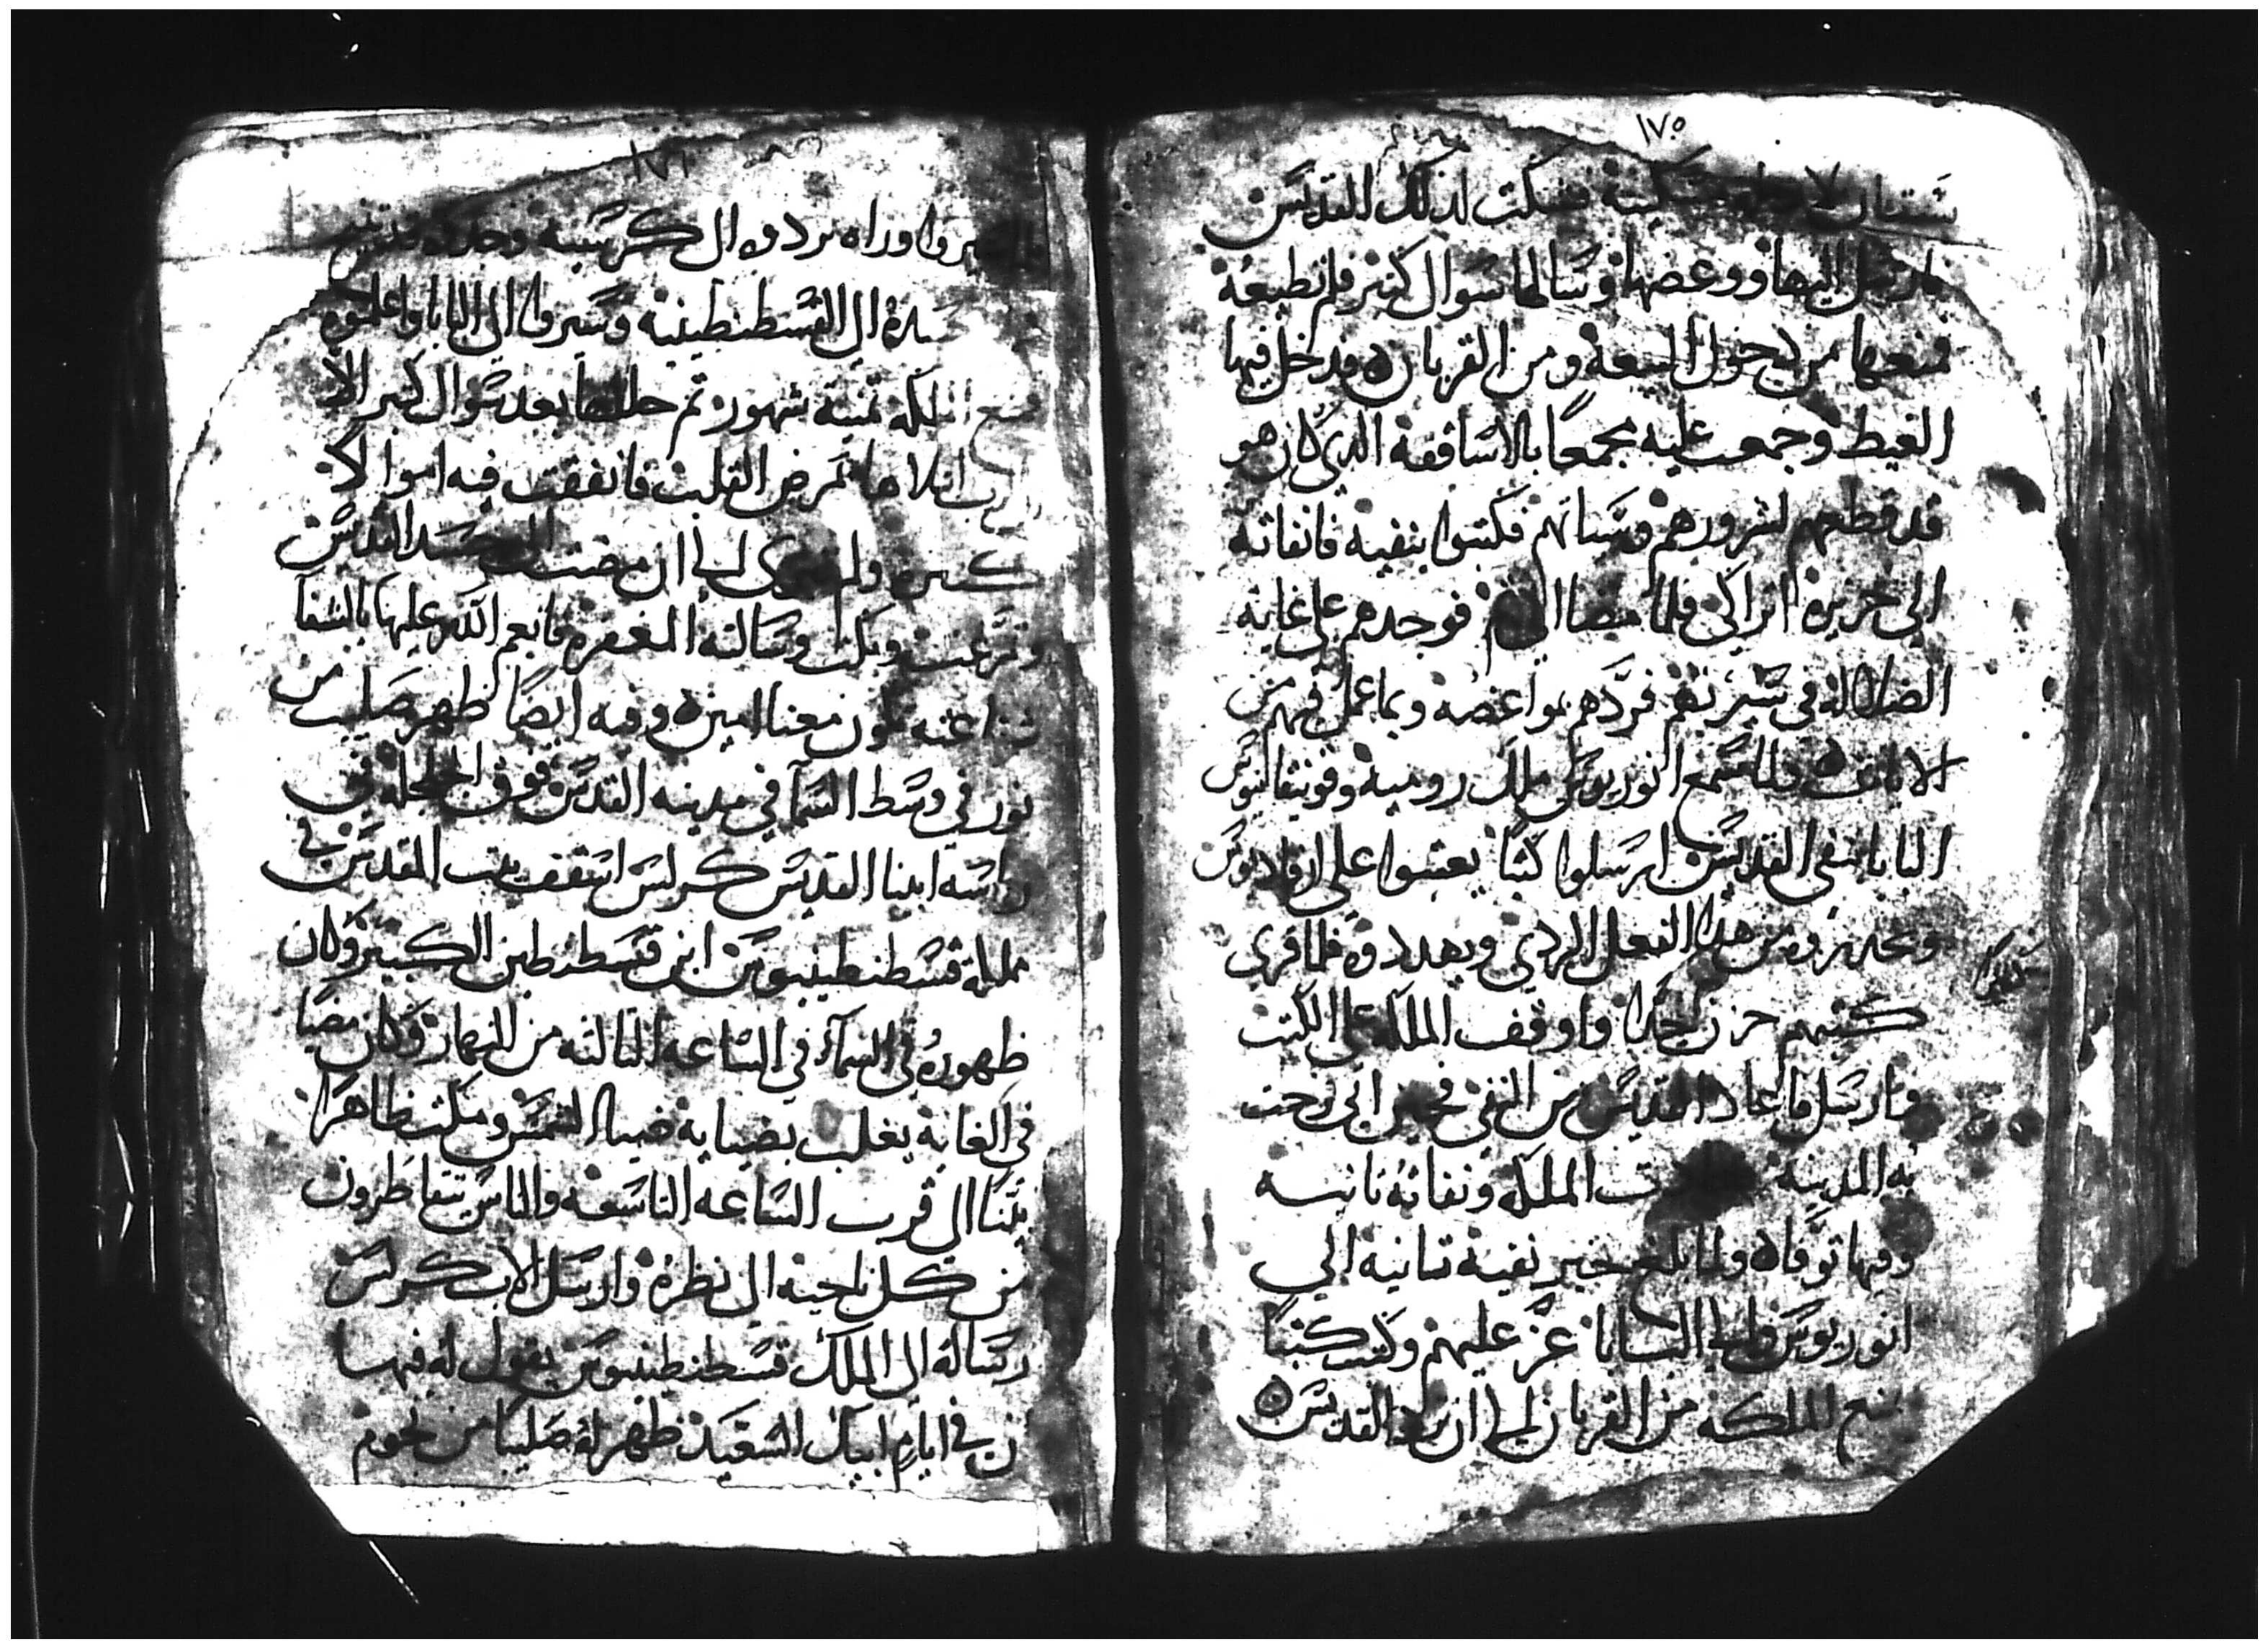 ١٧٠
بستان لامراة مسكينة فشكت لذلك القديس
فارسل اليها ووعضها وسالها سوال كثير فلم تطيعه
فمنعها من دخول البيعة ومن القربان فدخل فيها
الغيظ وجمعت عليه مجمعًا بالاساقفة الدي كان هو
قد قطعهم لشرورهم وسالتهم فكتبوا بنفيه فانفاته
الي جزيرة اتراكي فلما مضا فوجدهم علي غاية
الضلالة في سير نفهم فردهم بمواعضه وبما عمل فيهم من
الايات ولما سمع انوريوس ملك رومية وفونيقاليوس
البابا بنفي القديس ارسلوا كتبًا يعتبوا علي ارقاديوس
ويحدروه من هدا الفعل الردي ويهددوه فلما قري
كتبهم حزن جدًا واوقف الملكة علي الكتب
فارسل فاعاد القديس من النفي فحين اتي فرحت
به المدينة الملكة ونفاته تانيه
وفيها توفاه ولما بلغ خبر نفيه تانية الي
انوريوس والي البابا عز عليهم وكتب كتبًا
بمنع الملكه من القربان الي ان يرد القديس
١٧١
سيروا وراه يردوه ال كرسيه وجدوه قد تنيح
جسده الي القسطنطينية وسيروا الي البابا واعلموه
فمنع الملكه تمنية شهور تم حللها بعد سوال كبير الا
الرب ابلاها بمرض القلب فانفقت فيه اموالا
كتير ولم الي ان مضت جسد القديس
وتضرعت وبكت وسالته المغفره فانعم الله عليها بالشفا
شفاعته تكون معنا امين وفيه ايضًا ظهر صليب من
نور في وسط السما في مدينه القدس فوق الجلجلة في
رياسة ابينا القديس كرلس اسقف بيت المقدس في
مملكة قسطنطينيوس ابن قسطنطين الكبير وكان
ظهوره في السماء في الساعه التالته من النهار وكان يضيا
في الغاية يغلب بضياية ضيا الشمس ومكت ظاهرًا
بيّنًا الي قرب الساعه التاسعه والناس يتقاطرون
من كل ناحية الي نظره وارسل الاب كرلس
رسالة الي الملك قسطنطينيوس يقول له فيها
ان في ايام ابيك السعيد ظهر له صليبًا من نجوم